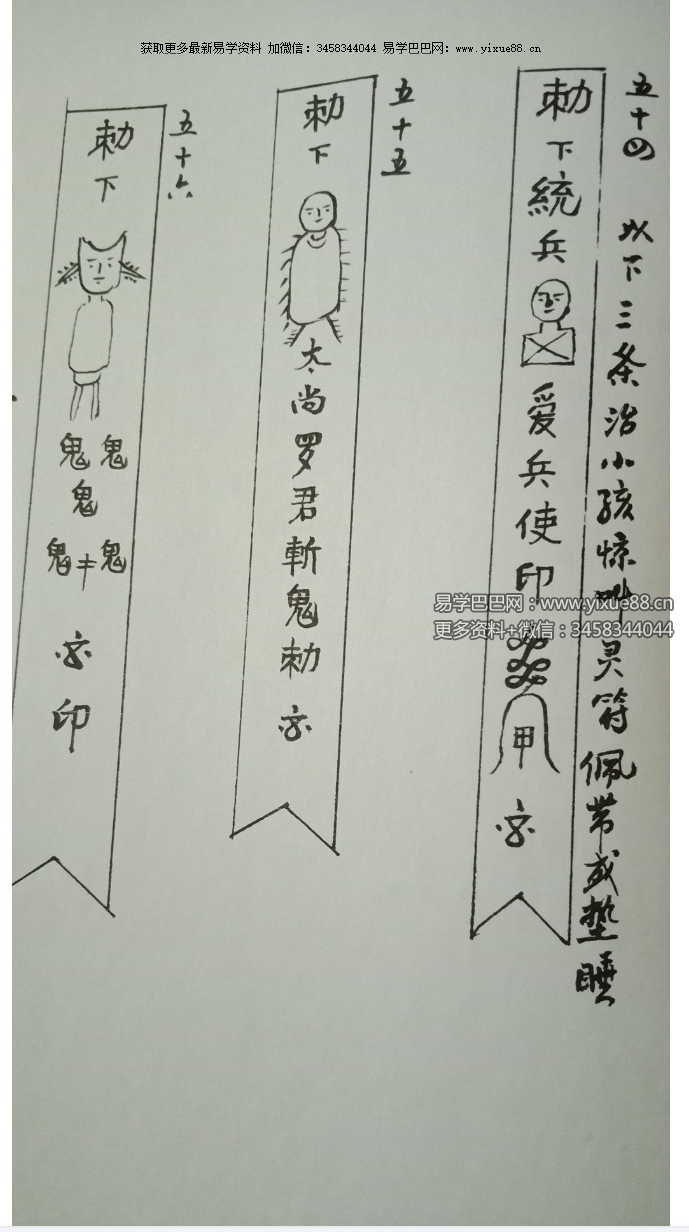 获取更多最新易学资料 加微信：3458344044 易学巴巴网：www.yixue88.cn
五十四 以下三条治小孩惊叫灵符佩带或垫睡
勅下統兵
爱兵使印
甲
五十五
勅下
太尚罗君斬鬼勅
五十六
勅下
鬼鬼
鬼
鬼鬼
印
易学巴巴网：www.yixue88.cn
更多资料+微信：3458344044